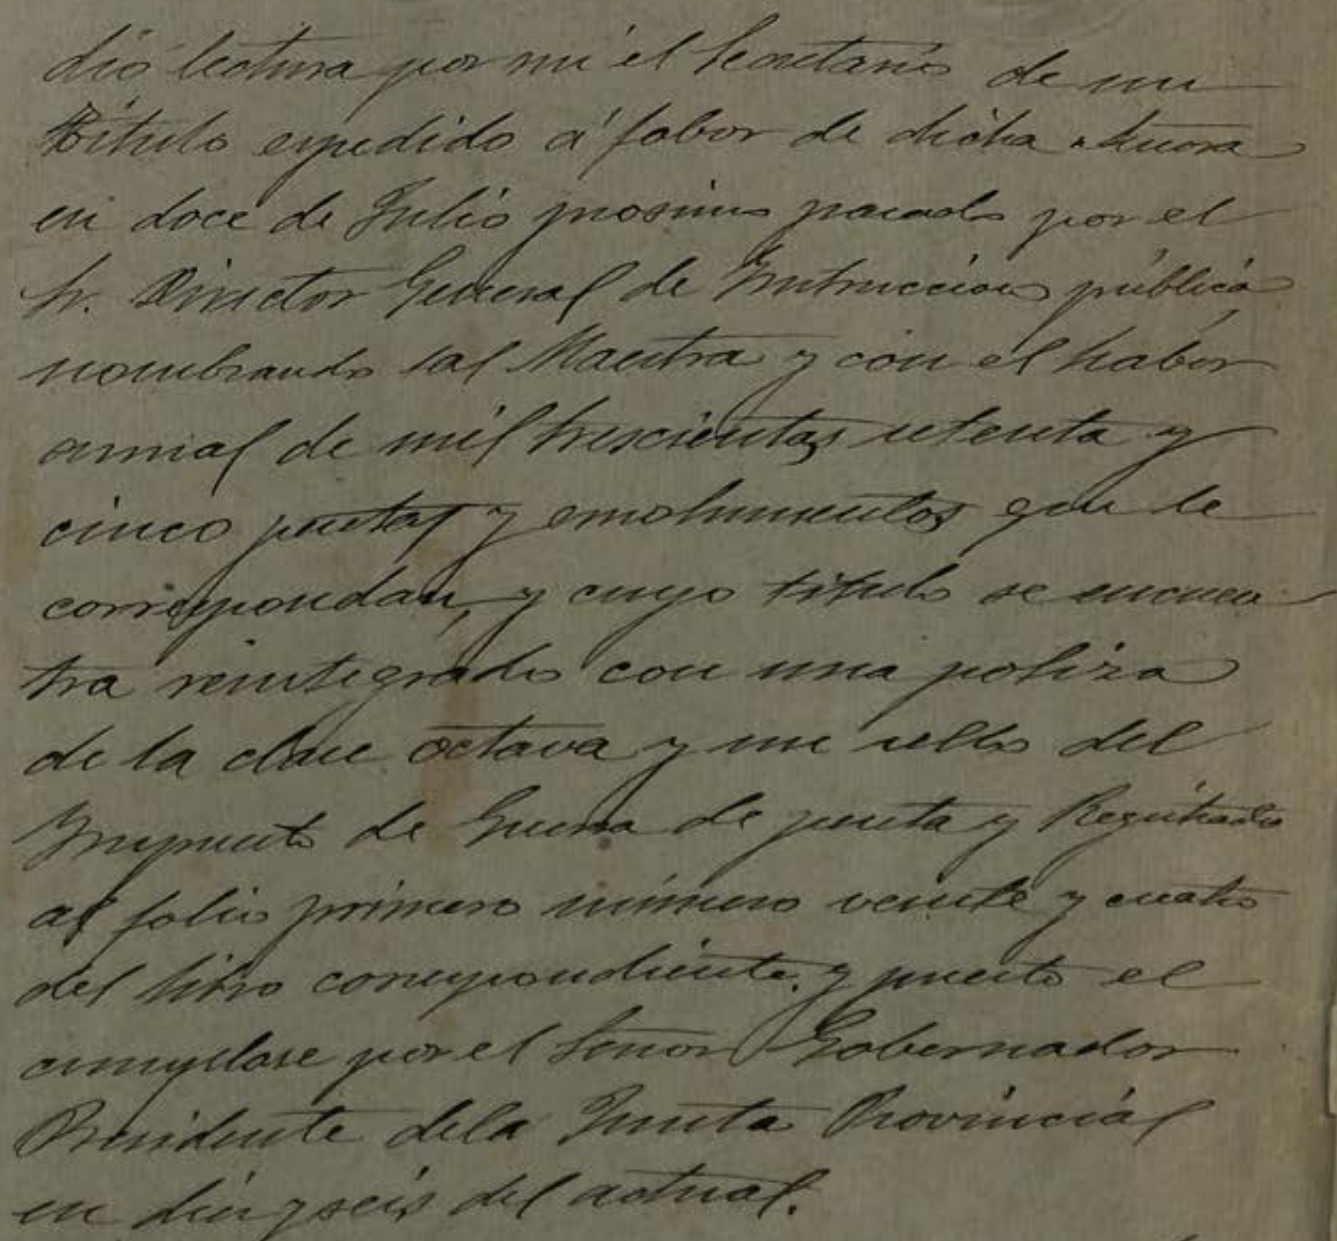 dió lectura por mi el Secretario de un
Título espedido á fabor de dicha Señora
en doce de Julio prosimo pasado por el
Sr. Director General de Instruccion pública
nombrando tal Maestra y con el haber
anual de mil trescientas setenta y
cinco pesetas y emolumentos que le
correspondan, y cuyo título se encuen
tra reintegrado con una poliza
de la clase octava y un sello del
Impuesto de Guerra de peseta y Registrado
al folio primero número veinte y cuatro
del libro correspondiente. y puesto el
cumplase por el Señor Gobernador
Presidente dela Junta Provincial
en diez y seis del actual.